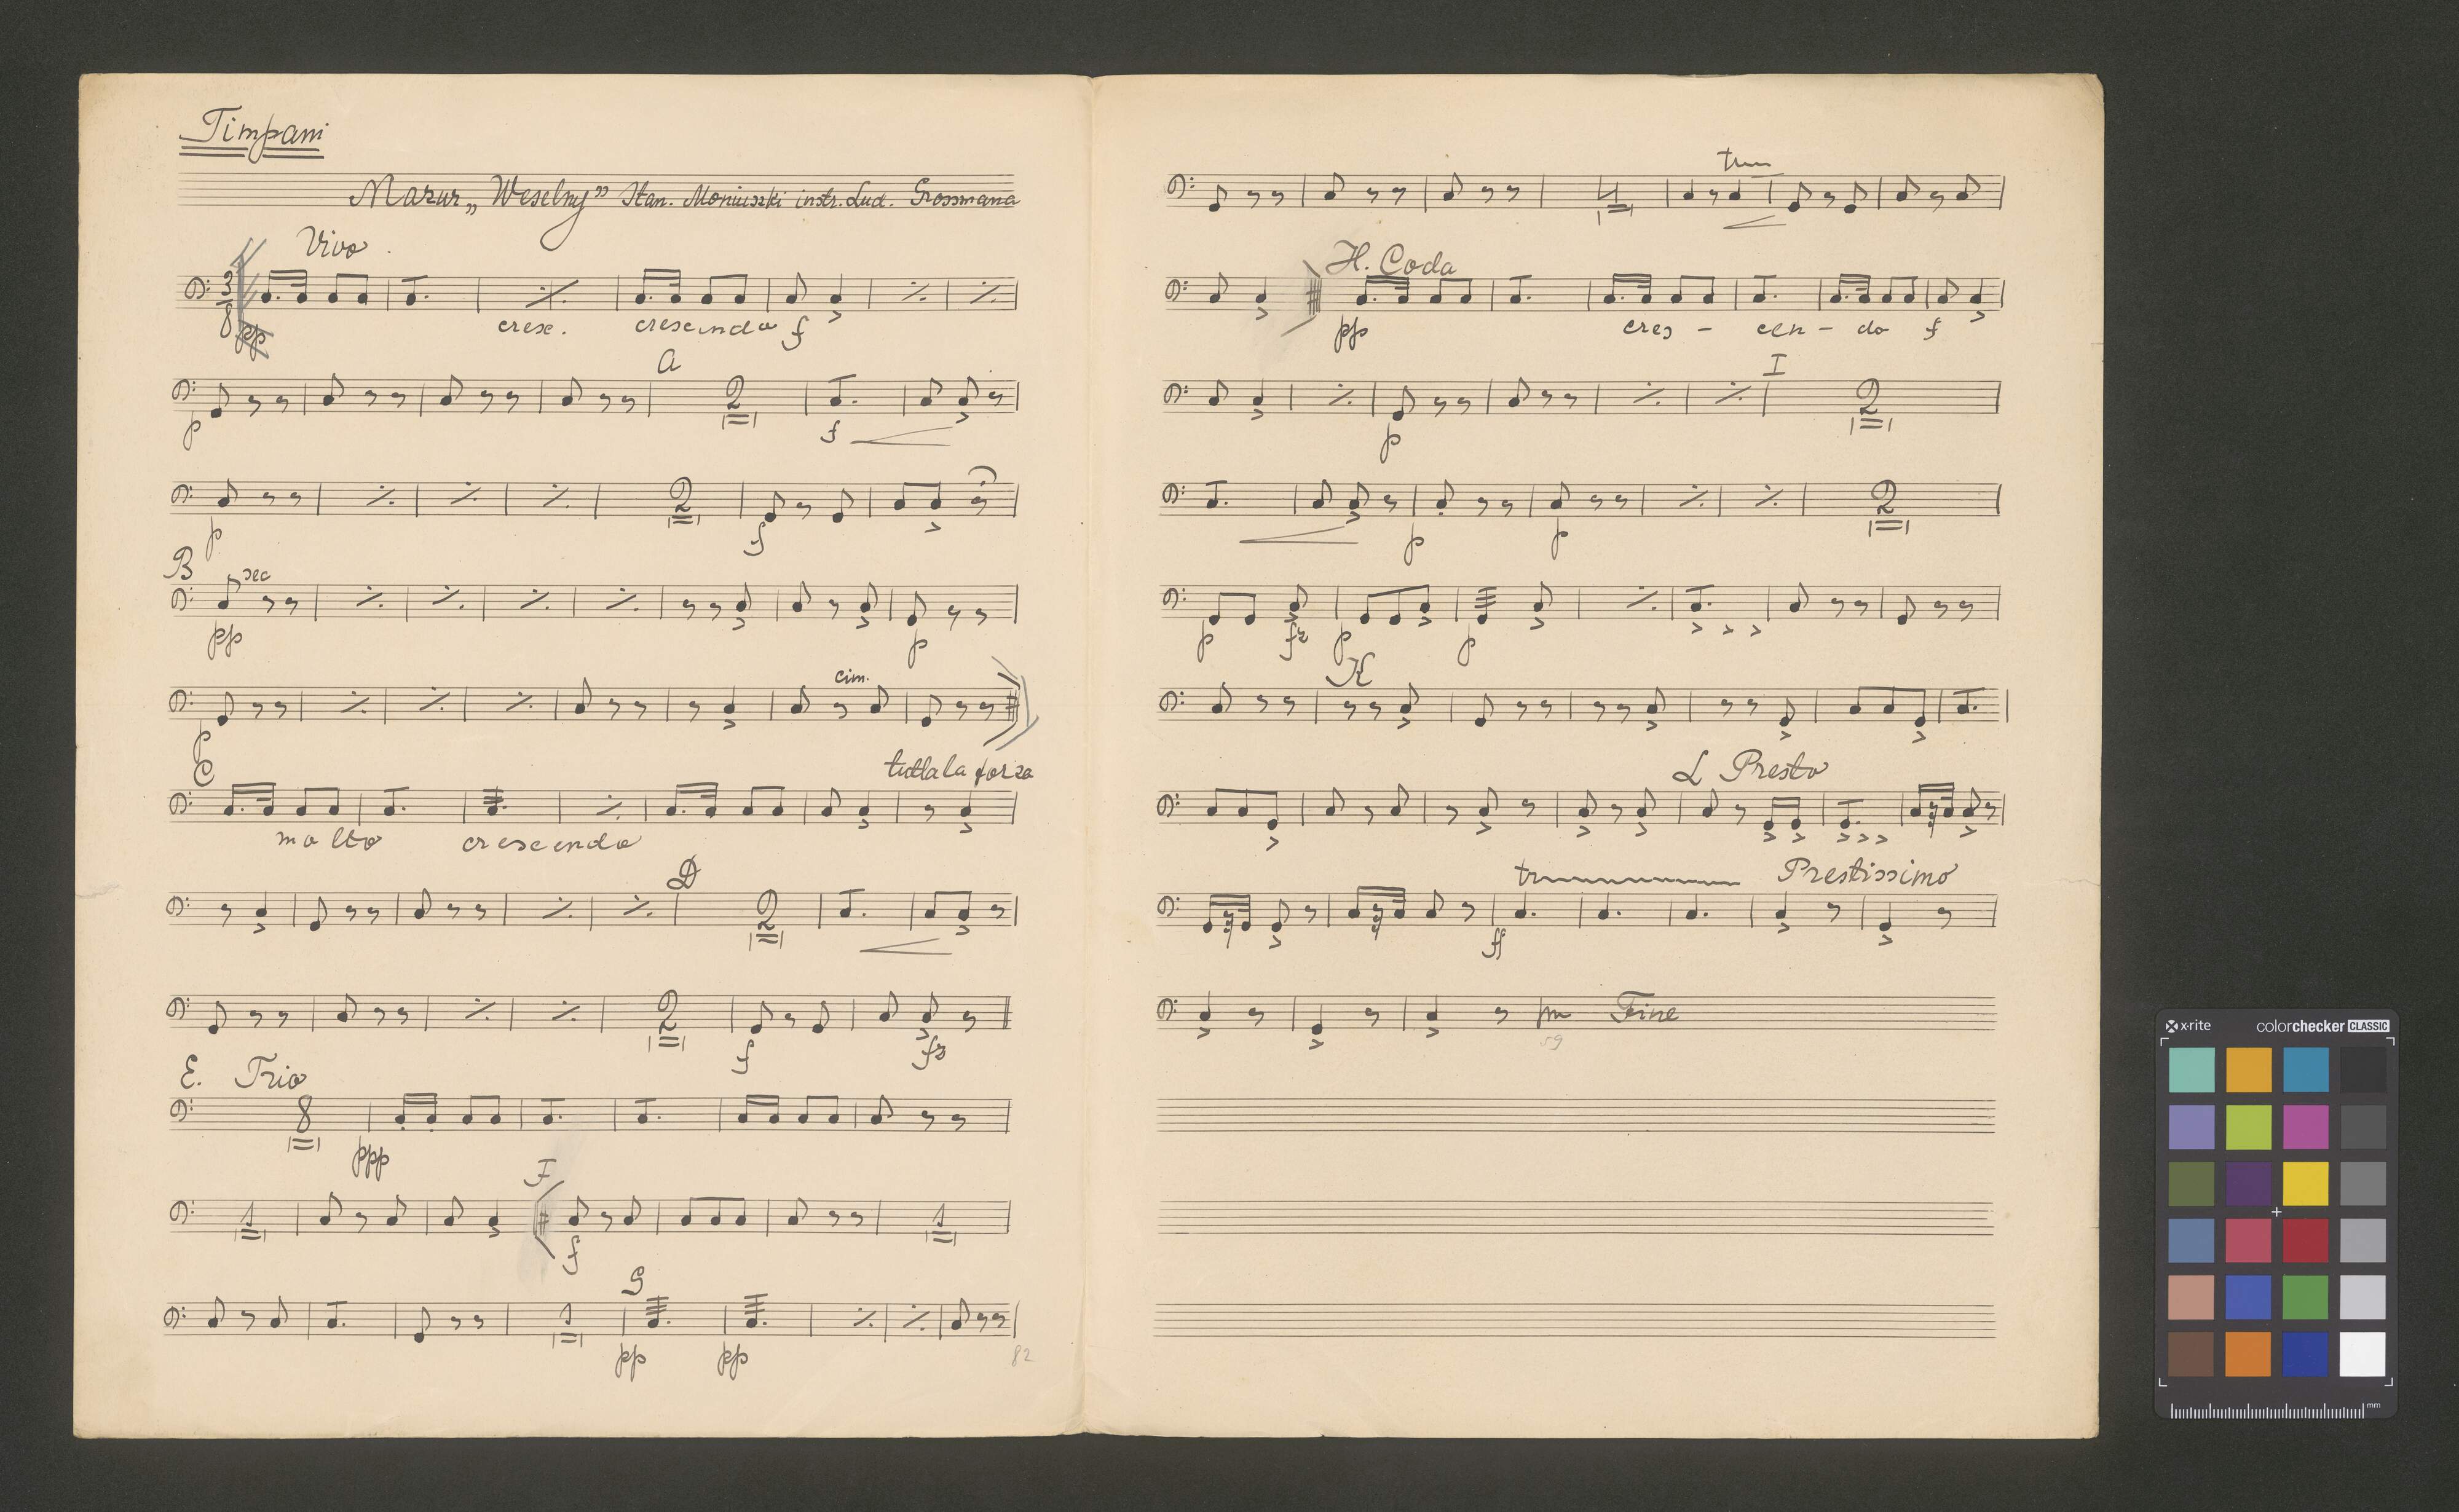 Timpani
Mazur „Weselny” Stan. Moniuszki instr. Lud. Grossmana
Vivo
3
8
pp cresc. crescendo f
A
p 2 f
p 2 f
B sec
pp p
cim.
p
C tutta la forza
molto crescendo
D
2
2 f fz
E. Trio
8 ppp
F
1 f 1
G
1 pp pp
82
tr
4
H. Coda
pp cres - cen - do f
I
p 2
p p 2
p fz p p
K
L Presto
tr Prestissimo
ff
Fine
59
x-rite colorchecker CLASSIC
mm